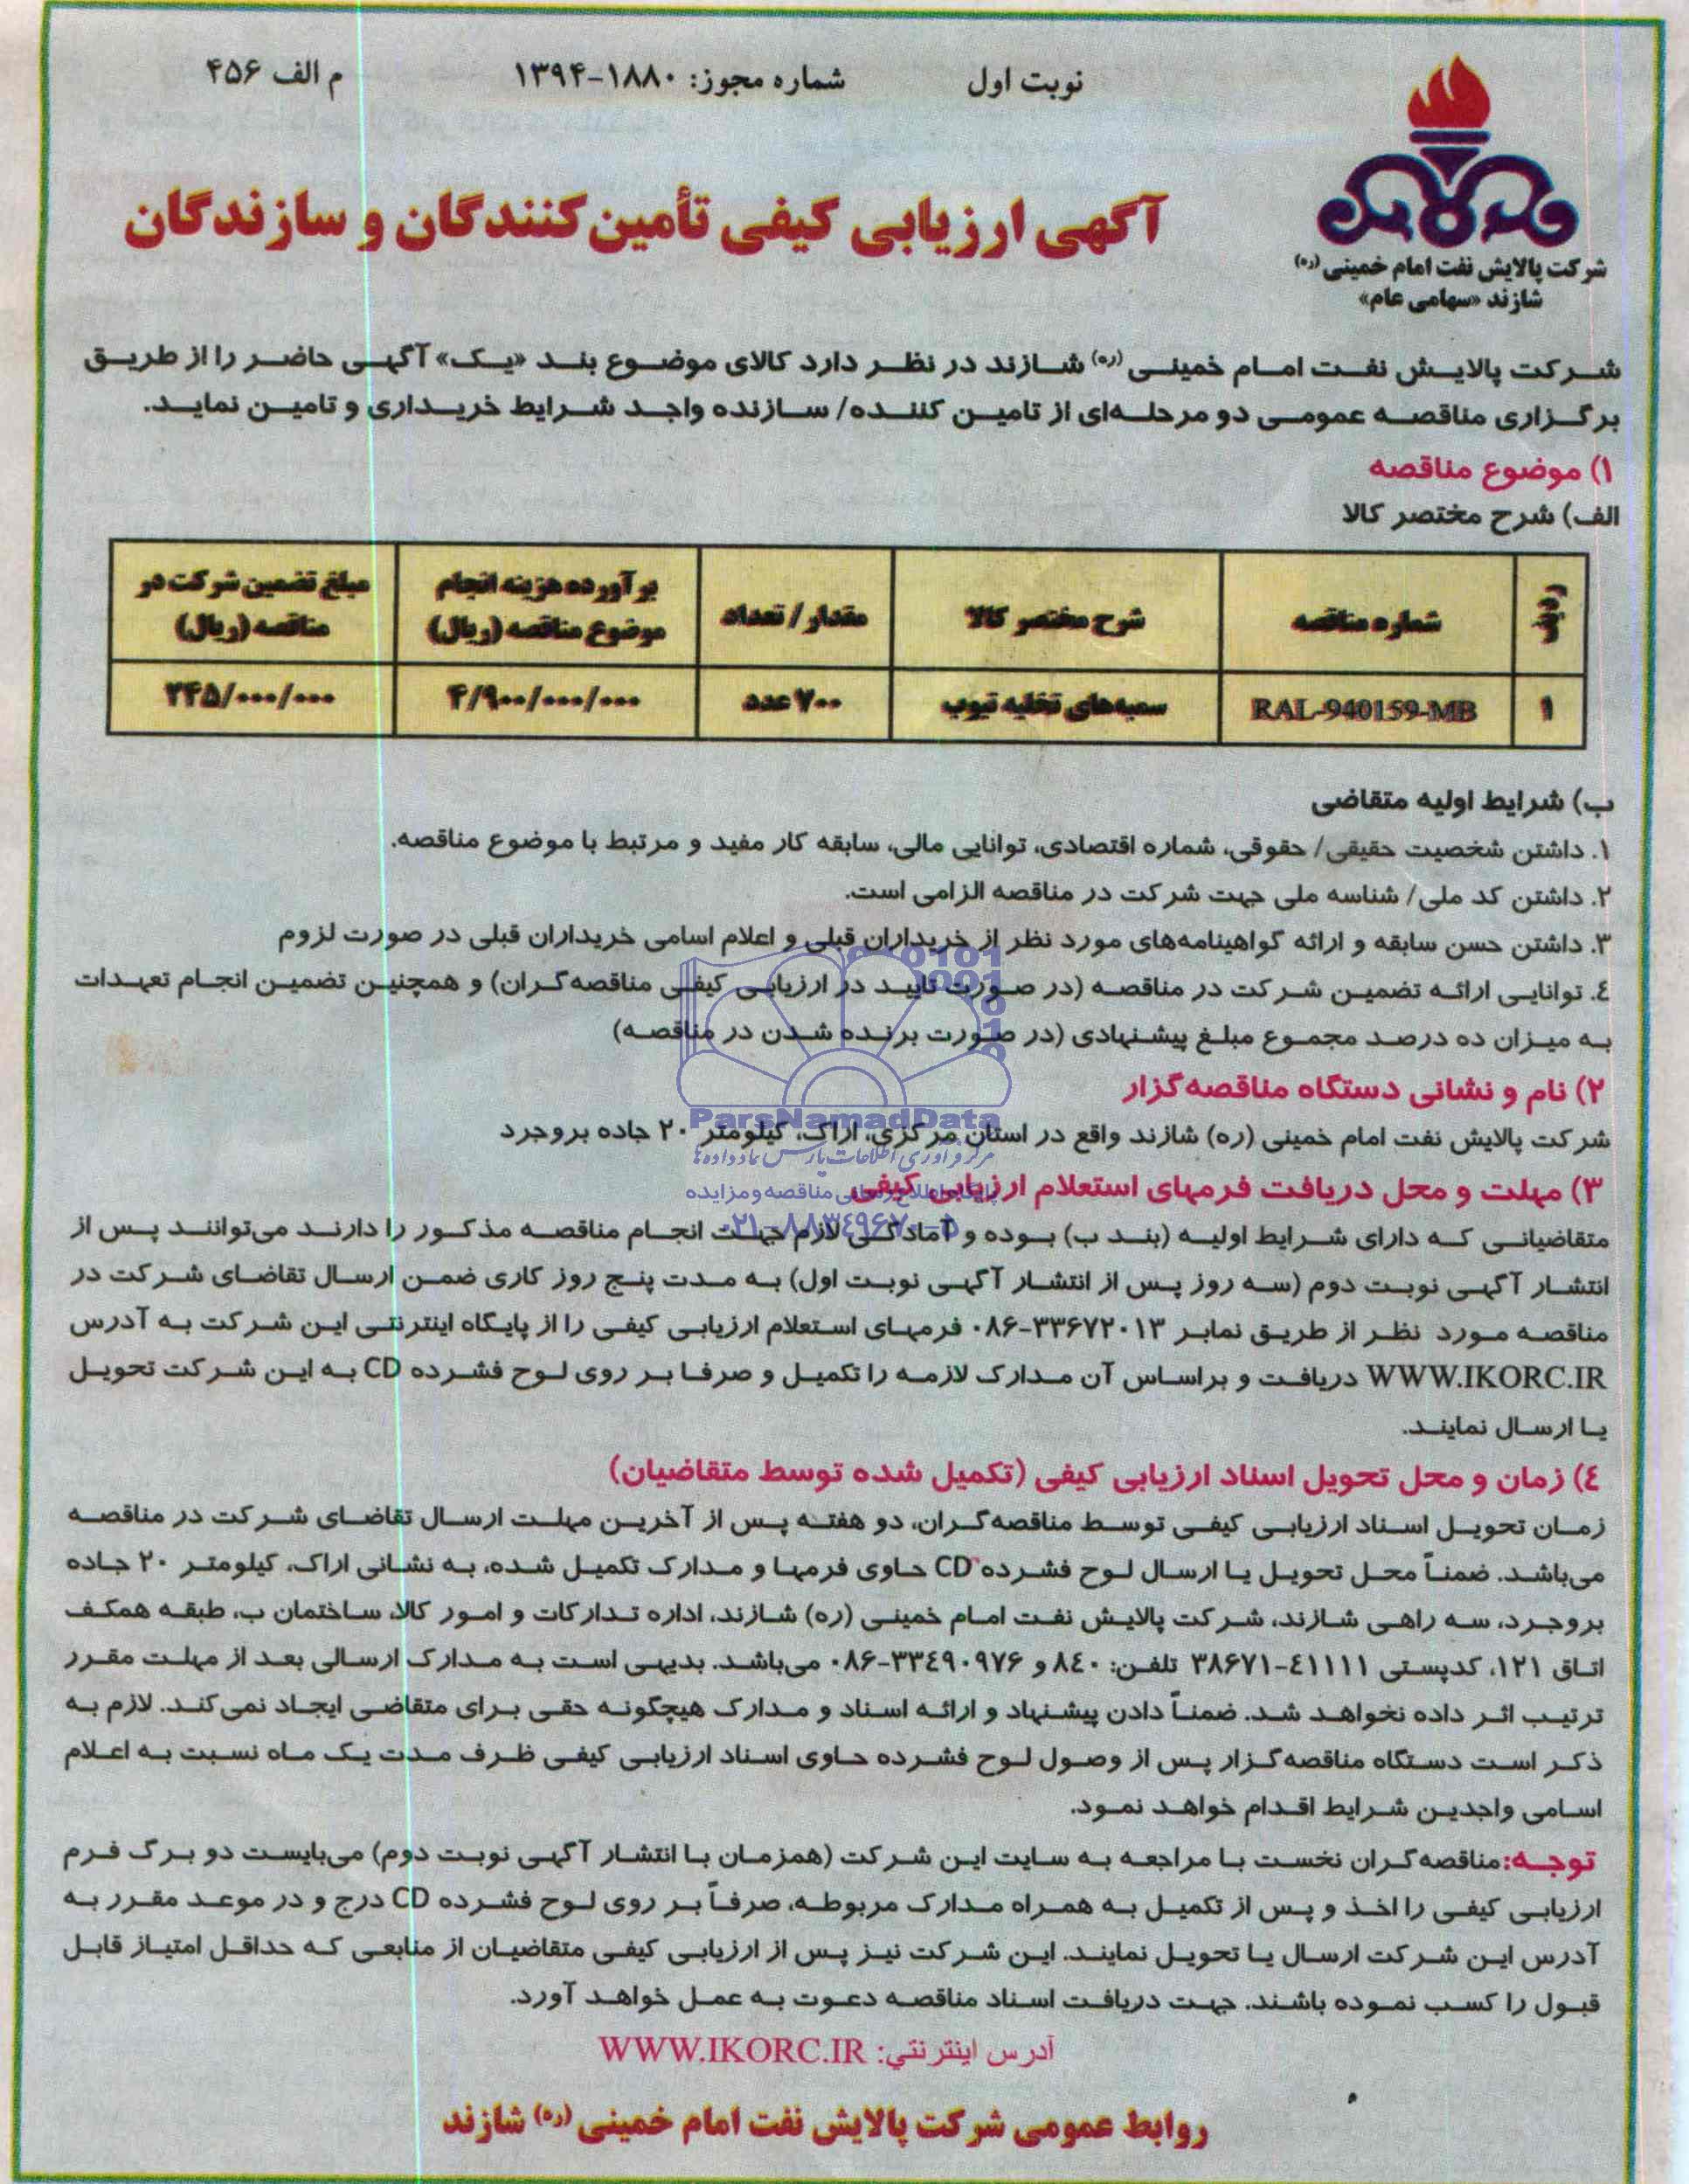 نوبت اول
شماره مجوز: ۱۸۸۰-۱۳۹۴
م الف ۴۵۶
شرکت پالایش نفت امام خمینی (ره)
شازند «سهامی عام»
آگهی ارزیابی کیفی تأمین‌کنندگان و سازندگان
شرکت پالایش نفت امام خمینی (ره) شازند در نظر دارد کالای موضوع بند «یک» آگهی حاضر را از طریق
برگزاری مناقصه عمومی دو مرحله‌ای از تامین کننده/ سازنده واجد شرایط خریداری و تامین نماید.
۱) موضوع مناقصه
الف) شرح مختصر کالا
ردیف | شماره مناقصه | شرح مختصر کالا | مقدار / تعداد | برآورده هزینه انجام موضوع مناقصه (ریال) | مبلغ تضمین شرکت در مناقصه (ریال)
۱ | RAL-940159-MB | سمبه‌های تخلیه تیوب | ۷۰۰ عدد | ۴/۹۰۰/۰۰۰/۰۰۰ | ۲۴۵/۰۰۰/۰۰۰
ب) شرایط اولیه متقاضی
۱. داشتن شخصیت حقیقی/ حقوقی، شماره اقتصادی، توانایی مالی، سابقه کار مفید و مرتبط با موضوع مناقصه.
۲. داشتن کد ملی/ شناسه ملی جهت شرکت در مناقصه الزامی است.
۳. داشتن حسن سابقه و ارائه گواهینامه‌های مورد نظر از خریداران قبلی و اعلام اسامی خریداران قبلی در صورت لزوم
٤. توانایی ارائه تضمین شرکت در مناقصه (در صورت تایید در ارزیابی کیفی مناقصه‌گران) و همچنین تضمین انجام تعهدات
به میزان ده درصد مجموع مبلغ پیشنهادی (در صورت برنده شدن در مناقصه)
۲) نام و نشانی دستگاه مناقصه‌گزار
شرکت پالایش نفت امام خمینی (ره) شازند واقع در استان مرکزی، اراک، کیلومتر ۲۰ جاده بروجرد
۳) مهلت و محل دریافت فرمهای استعلام ارزیابی کیفی
متقاضیانی که دارای شرایط اولیه (بند ب) بوده و آمادگی لازم جهت انجام مناقصه مذکور را دارند می‌توانند پس از
انتشار آگهی نوبت دوم (سه روز پس از انتشار آگهی نوبت اول) به مدت پنج روز کاری ضمن ارسال تقاضای شرکت در
مناقصه مورد نظر از طریق نمابر ۳۳۶۷۲۰۱۳-۰۸۶ فرمهای استعلام ارزیابی کیفی را از پایگاه اینترنتی این شرکت به آدرس
WWW.IKORC.IR دریافت و براساس آن مدارک لازمه را تکمیل و صرفا بر روی لوح فشرده CD به این شرکت تحویل
یا ارسال نمایند.
٤) زمان و محل تحویل اسناد ارزیابی کیفی (تکمیل شده توسط متقاضیان)
زمان تحویل اسناد ارزیابی کیفی توسط مناقصه‌گران، دو هفته پس از آخرین مهلت ارسال تقاضای شرکت در مناقصه
می‌باشد. ضمناً محل تحویل یا ارسال لوح فشرده CD حاوی فرمها و مدارک تکمیل شده، به نشانی اراک، کیلومتر ۲۰ جاده
بروجرد، سه راهی شازند، شرکت پالایش نفت امام خمینی (ره) شازند، اداره تدارکات و امور کالا، ساختمان ب، طبقه همکف
اتاق ۱۲۱، کدپستی ٤۱۱۱۱-۳۸۶۷۱ تلفن: ۸٤۰ و ۳۳٤۹۰۹۷۶-۰۸۶ می‌باشد. بدیهی است به مدارک ارسالی بعد از مهلت مقرر
ترتیب اثر داده نخواهد شد. ضمناً دادن پیشنهاد و ارائه اسناد و مدارک هیچگونه حقی برای متقاضی ایجاد نمی‌کند. لازم به
ذکر است دستگاه مناقصه‌گزار پس از وصول لوح فشرده حاوی اسناد ارزیابی کیفی ظرف مدت یک ماه نسبت به اعلام
اسامی واجدین شرایط اقدام خواهد نمود.
توجه: مناقصه‌گران نخست با مراجعه به سایت این شرکت (همزمان با انتشار آگهی نوبت دوم) می‌بایست دو برگ فرم
ارزیابی کیفی را اخذ و پس از تکمیل به همراه مدارک مربوطه، صرفاً بر روی لوح فشرده CD درج و در موعد مقرر به
آدرس این شرکت ارسال یا تحویل نمایند. این شرکت نیز پس از ارزیابی کیفی متقاضیان از منابعی که حداقل امتیاز قابل
قبول را کسب نموده باشند. جهت دریافت اسناد مناقصه دعوت به عمل خواهد آورد.
آدرس اینترنتي: WWW.IKORC.IR
روابط عمومی شرکت پالایش نفت امام خمینی (ره) شازند
ParsNamadData
مرکز فرآوری اطلاعات پارس نماد داده‌ها
پایگاه اطلاع رسانی مناقصه و مزایده
۰۲۱-۸۸۳٤۹۶۷۰-۵